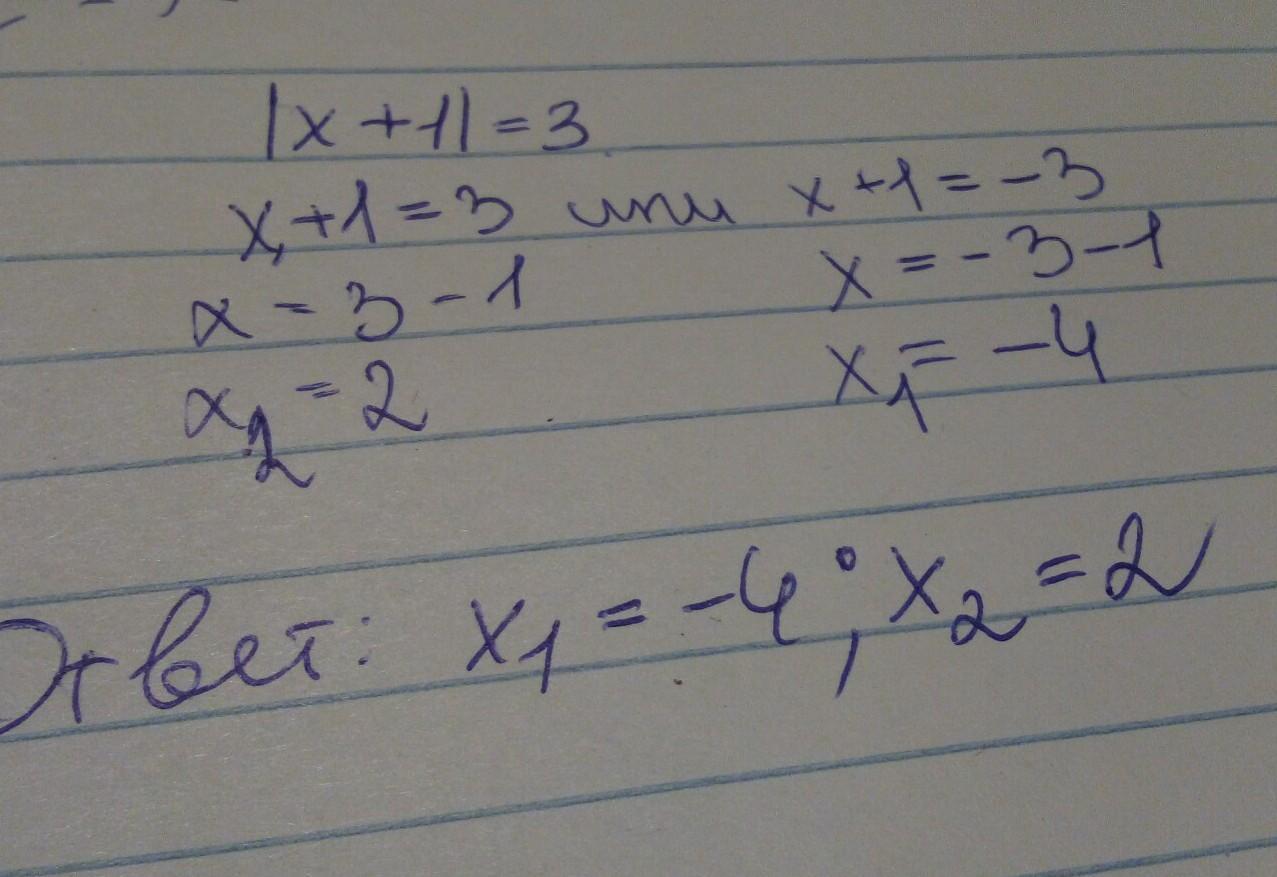 |x+1|=3
x+1=3 или x+1=-3
x=3-1 x=-3-1
x₂=2 x₁=-4
Ответ: x₁=-4; x₂=2